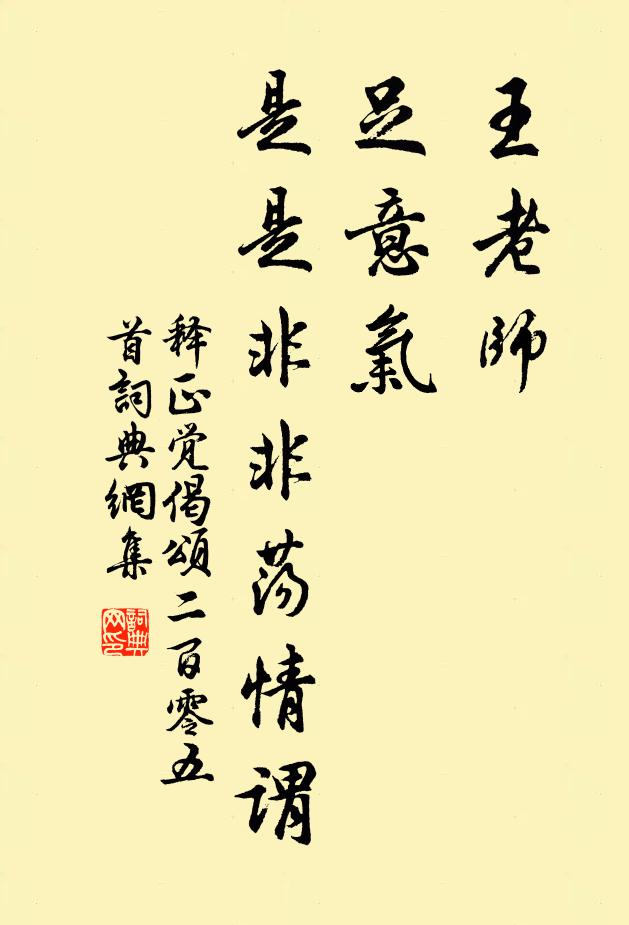 王老師
足意氣
是是非非荡情謂
释正觉偈頌二百零五
首詞典網集
詞典
网印